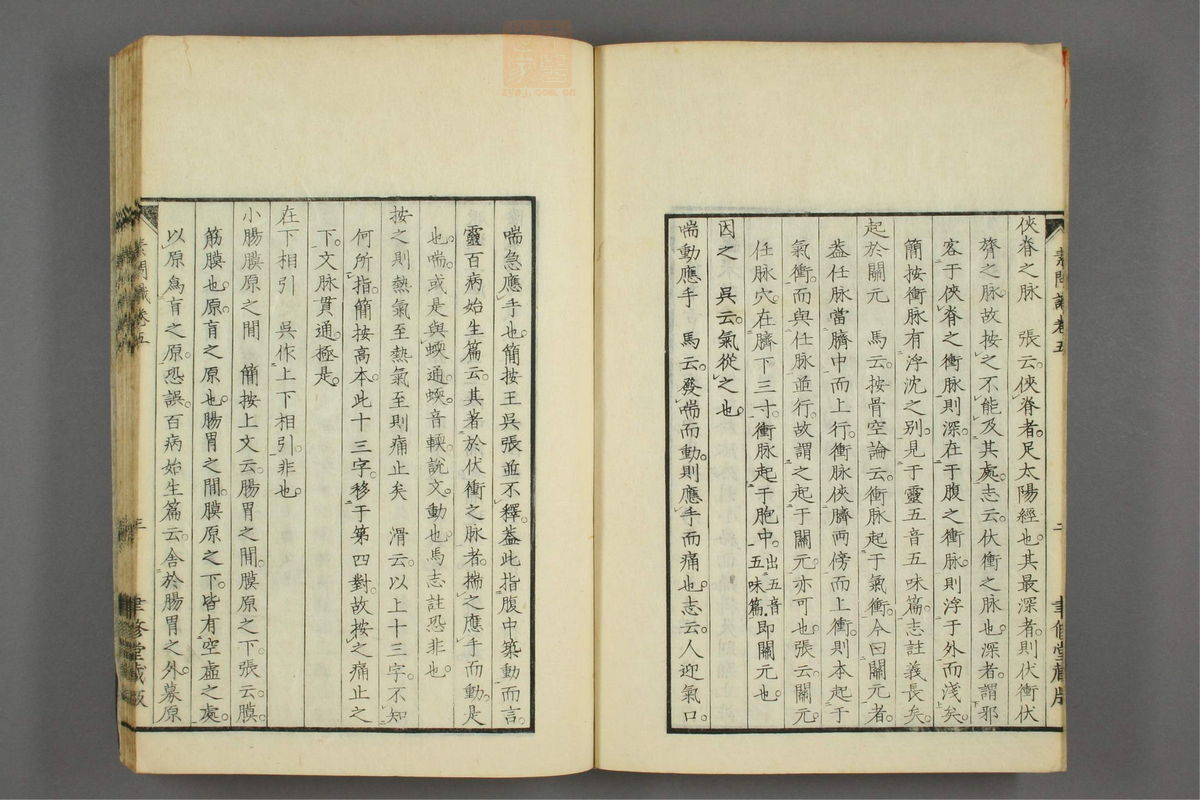 素問識卷五
二
聿修堂藏版
俠脊之脉　張云。俠脊者足太陽經也。其最深者。則伏衝伏
膂之脉。故按之不能及其處。志云。伏衝之脉也。深者。謂邪
客于俠脊之衝脉。則深。在于腹之衝脉。則浮于外而淺矣。
簡按衝脉有浮沈之別。見于靈五音五味篇。志註義長矣。
起於關元　馬云。按骨空論云。衝脉起于氣衝。今曰關元者。
蓋任脉當臍中而上行。衝脉俠臍兩傍而上行。則本起于
氣衝。而與任脉並行。故謂之起于關元亦可也。張云。關元。
任脉穴。在臍下三寸。衝脉起于胞中。出五音五味篇。即關元也
因之　吳云。氣從之也。
喘動應手　馬云。發喘而動。則應手而痛也。志云。人迎氣口。
喘急應手也。簡按王吳張並不釋。蓋此指腹中築動而言。
靈百病始生篇云。其著於伏衝之脉者。揣之應手而動。是
也。喘。或是與蝡通。蝡。音輭。說文。動也。馬志註恐非也。
按之則熱氣至熱氣至則痛止矣　滑云。以上十三字。不知
何所指。簡按高本。此十三字。移于第四對。故按之痛止之
下。文脉貫通。極是。
在下相引　吳作上下相引。非也。
小腸膜原之間　簡按上文云。腸胃之間。膜原之下。張云。膜。
筋膜也。原。肓之原也。腸胃之間。膜原之下。皆有空虛之處。
以原爲肓之原。恐誤。百病始生篇云。舍於腸胃之外。募原
素問識卷五
三
聿修堂藏版